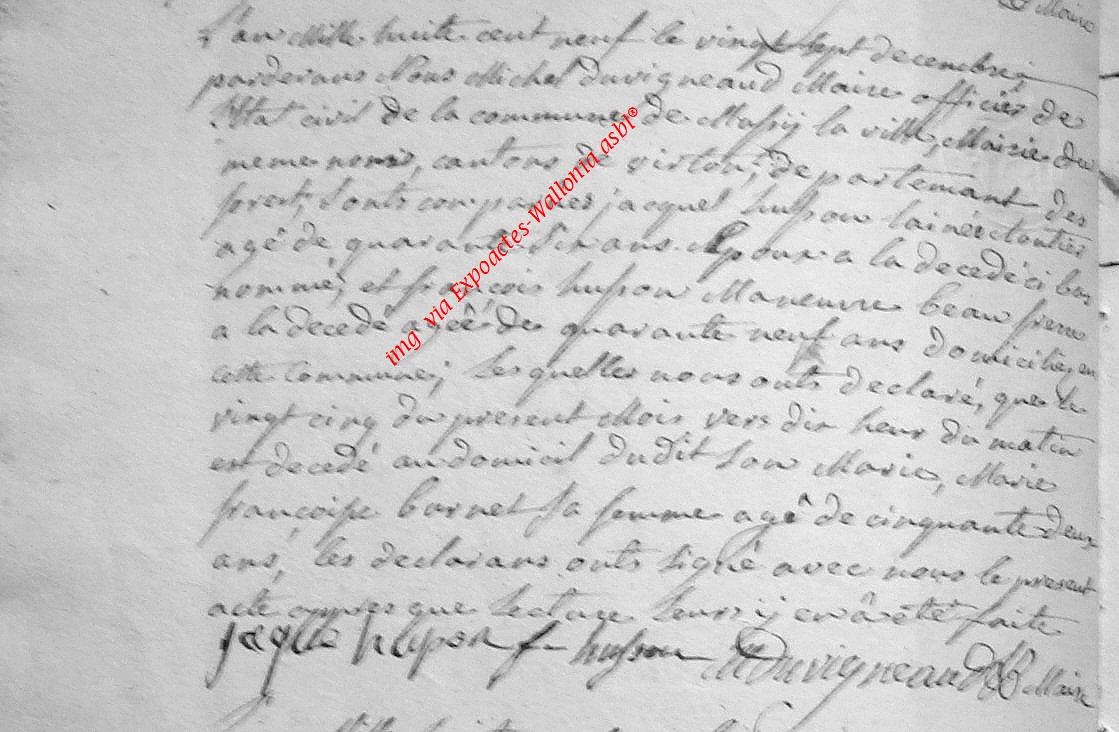 Maire
L'an Mille huite cent neuf le vingt sept decembre
pardevans Nous Michel Duvigneaud Maire officier de
l'Etat civil de la commune de Mussy la ville, Mairie du
meme nom, cantons de virton, departemant des
forest, sonts comparües jacque husson lainé cloutier
agé de quarante six ans Epoux a la decedé ci bas
nommé, et françois husson Maneuvre beau frere
a la decedé agéé de quarante neuf ans domicilies en
cette commune; lesquelles nous onts declaré, que le
vingt cinq du present Mois vers dix heur du matin
est decedé audomicil dudit son Marie, Marie
françoise bornet sa femme agé de cinquante deux
ans, les declarans onts signé avec nous le present
acte apprès que lectuge leurs ij en â êtée faite
jaqlle huson f husson M Duvigneaud Maire
img via Expoactes-Wallonia asbl®